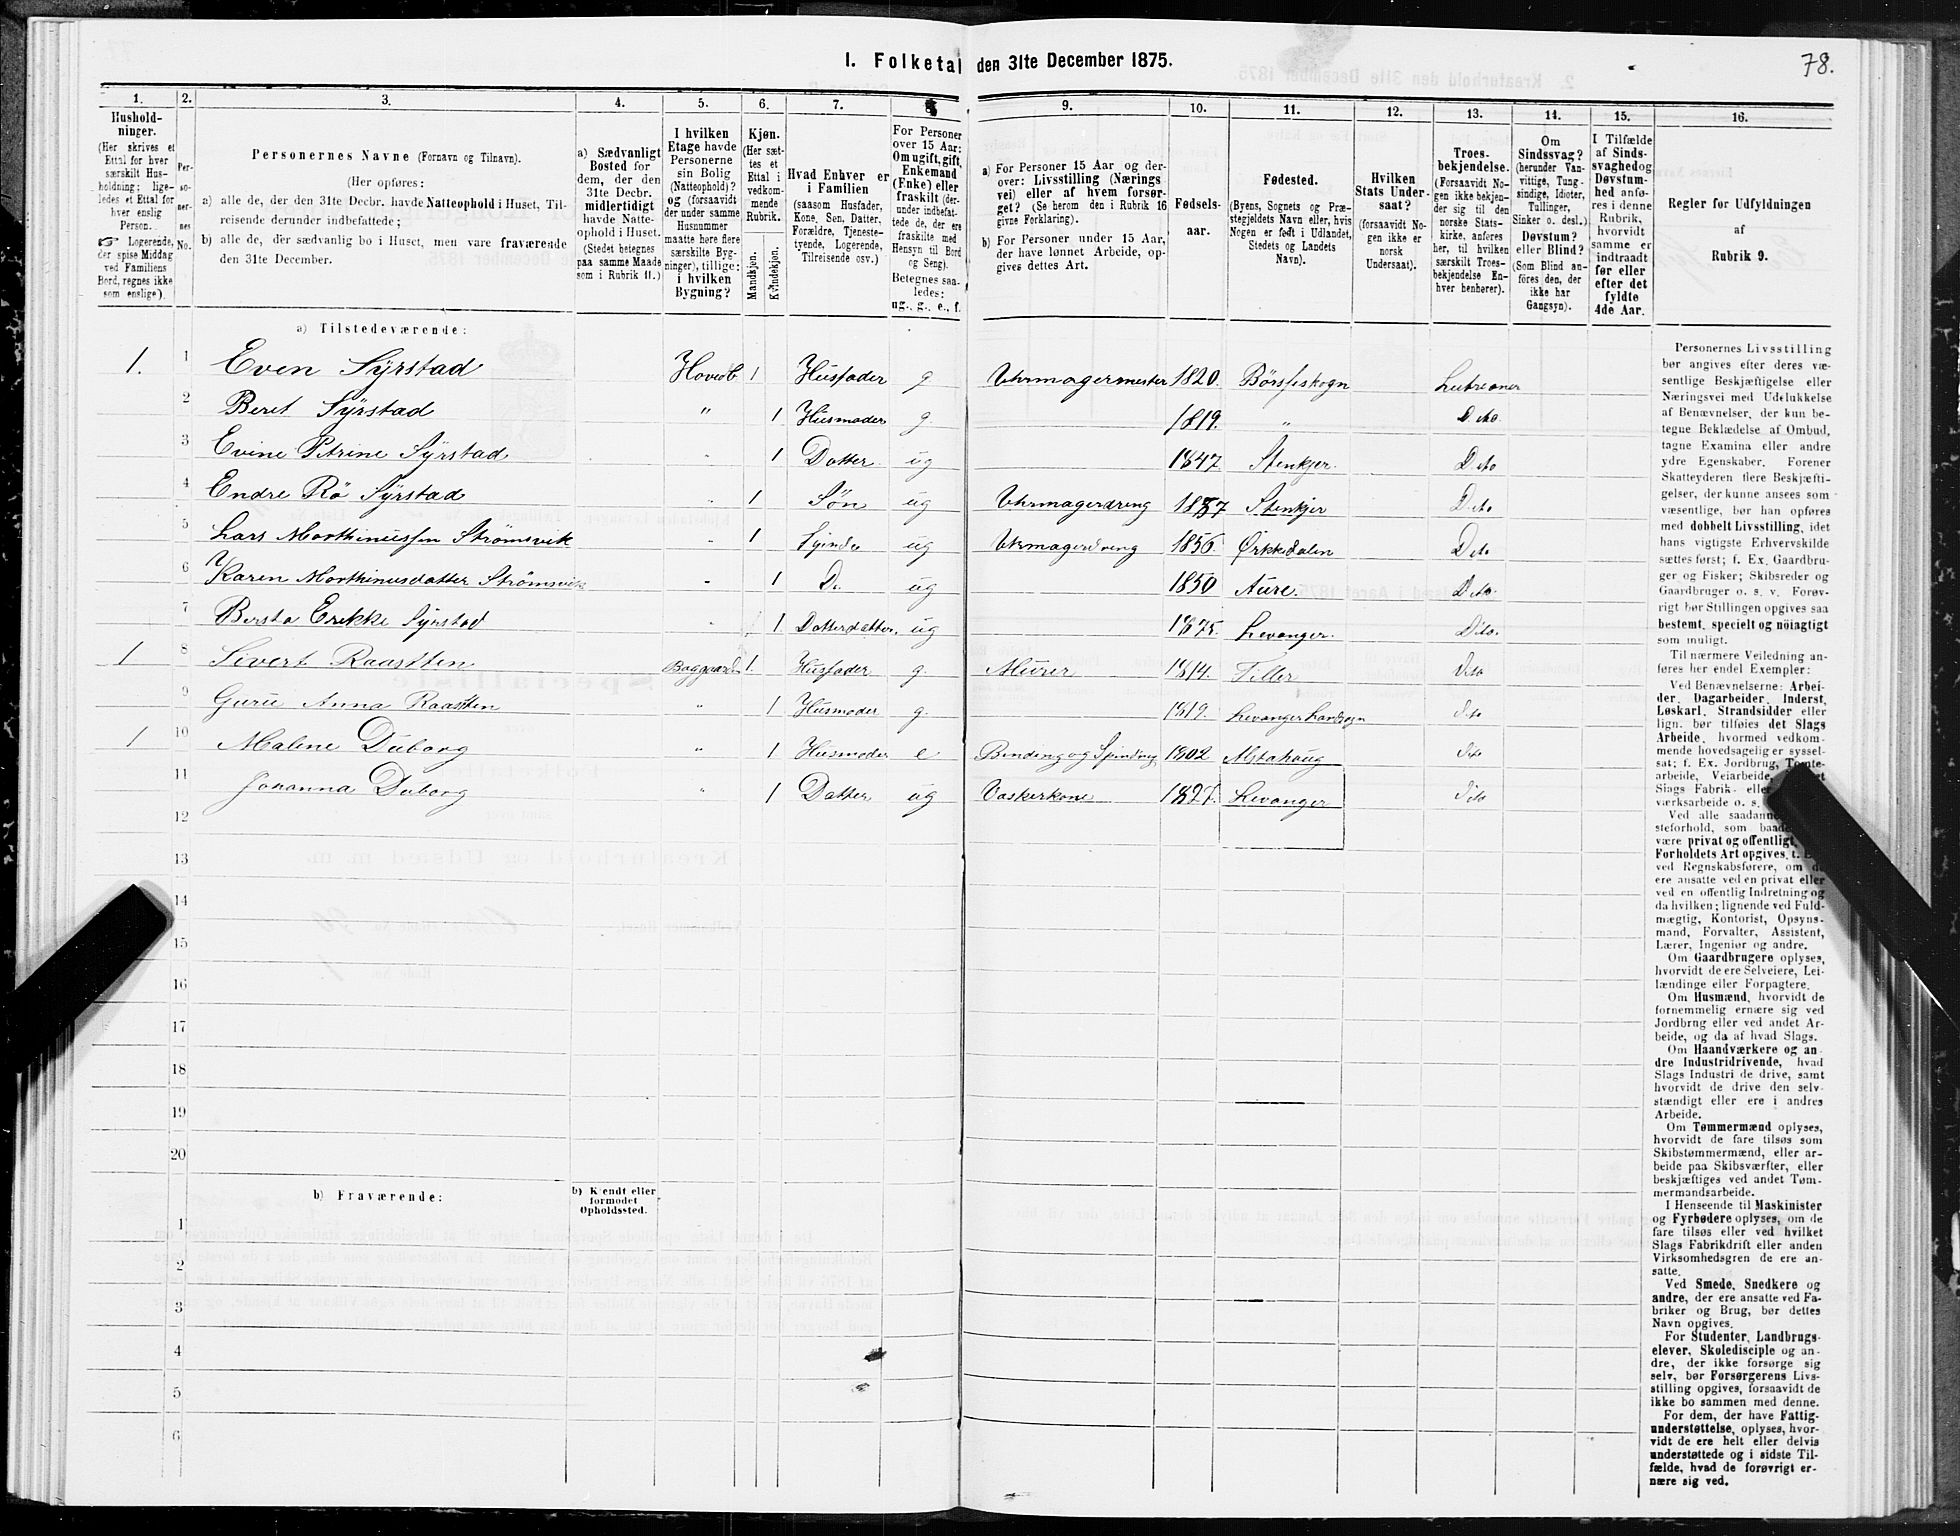 1. Folketal den 31te December 1875.
78.
1. 2. 3. 4. 5. 6. 7. 8. 9. 10. 11. 12. 13. 14. 15. 16.
Hushold-
ninger.
(Her skrives et
Ettal for hver
særskilt Hus-
holdning; lige-
ledes et Ettal for
hver enslig
Person.
Logerende,
der spise Middag
ved Familiens
Bord, regnes ikke
som enslige).
Per-
so-
ner-
nes
No.
Personernes Navne (Fornavn og Tilnavn).
(Her opføres:
a) alle de, der den 31te Decbr. havde Natteophold i Huset, Til-
reisende derunder indbefattede;
b) alle de, der sædvanlig bo i Huset, men vare fraværende
den 31te December.
a) Sædvanligt
Bosted for
dem, der den
31te Decbr.
midlertidigt
havde Natte-
ophold i Huset.
(Stedet betegnes
paa samme Maade
som i Rubrik 11.)
I hvilken
Etage havde
Personerne
sin Bolig
(Natteophold)?
og (forsaavidt
der under samme
Husnummer
maatte høre flere
særskilte Byg-
ninger), tillige:
i hvilken
Bygning?
Kjøn.
(Her sæt-
tes et
Ettal i
vedkom-
mende
Rubrik.
Mandkjøn.
Kvindekjøn.
Hvad Enhver er
i Familien
(saasom Husfader,
Kone, Søn, Datter,
Forældre, Tjeneste-
tyende, Logerende,
Tilreisende osv.)
For Personer
over 15 Aar:
Om ugift, gift,
Enkemand
(Enke) eller
fraskilt (der-
under indbefat-
tede de, der ere
fraskilte med
Hensyn til Bord
og Seng).
Betegnes saa-
ledes:
ug., g., e., f.
a) For Personer 15 Aar og der-
over: Livsstilling (Nærings
vei) eller af hvem forsør-
get? (Se herom den i Rubrik 16
givne Forklaring).
b) For Personer under 15 Aar,
der have lønnet Arbeide, op-
gives dettes Art.
Fødsels-
aar.
Fødested.
(Byens, Sognets og Præ-
stegjeldets Navn eller, hvis
Nogen er født i Udlandet,
Stedets og Landets
Navn).
Hvilken
Stats Under-
saat?
(forsaavidt No-
gen ikke er
norsk
Undersaat).
Troes-
bekjendelse.
(Forsaavidt No-
gen ikke bekjen-
der sig til den
norske Stats-
kirke, anføres
her, til hvilken
særskilt Troes-
bekjendelse En-
hver henhører).
Om
Sindssvag?
(herunder Van-
vittige, Tung-
sindige, Idioter,
Tullinger,
Sinker o. desl.)
Døvstum?
eller Blind?
(Som Blind an-
føres den, der
ikke har
Gangsyn).
I Tilfælde
af Sinds-
svaghed og
Døvstum-
hed anfø-
res i denne
Rubrik,
hvorvidt
samme er
indtraadt
før eller
efter det
fyldte
4de Aar.
Regler for Udfyldningen
af
Rubrik 9.
a) Tilstedeværende:
1. 1 Even Syrstad Hovedb 1 Husfader g Uhrmagermester 1820. Börsfeskogn Lutreaner
2 Beret Syrstad " 1 Husmoder g. 1819. " Dito.
3 Evine Petrine Syrstad " 1 Datter. ug 1847. Stenkjer. Dito
4 Endre Rö Syrstad " 1 Søn ug Uhrmagerdreng 1857 Stenkjer Dito
5 Lars Morthinussen Strømsvik " 1 ug Uhrmagerdreng 1856. Ørkedalen Dito
6 Karen Morthinusdatter Strømsvik " 1 Do ug 1850 Aure. Dito.
7 Bersta Erikke Syrstad " 1 Datterdatter. ug 1875. Levanger. Dito.
1 8 Sivert Raastten Baggaard 1. Husfader g. Murer 1814. Tiller Dito
9 Guru Anna Raastten " 1 Husmoder g. 1819. Levanger Landsogn Dito
1 10 Malene Duborg " 1 Husmoder e Binding og Spinding 1802 Alstahaug Dito
11 Johanna Duborg " 1 Datter ug Vaskerkone 1827. Levanger Dito
12
13
14
15
16
17
18
19
20
b) Fraværende:
b) Kjendt eller
formodet
Opholdssted.
1
2
3
4
5
6
Personernes Livsstilling
bør angives efter deres væ-
sentlige Beskjæftigelse eller
Næringsvei med Udelukkelse
af Benævnelser, der kun be-
tegne Beklædelse af Ombud,
tagne Examina eller andre
ydre Egenskaber. Forener
Skatteyderen flere Beskjæfti-
gelser, der kunne ansees som
væsentlige, bør han opføres
med dobbelt Livsstilling, idet
hans vigtigste Erhvervskilde
sættes først; f. Ex. Gaardbru-
ger og Fisker; Skibsreder og
Gaardbruger o. s. v. Forøv-
rigt bør Stillingen opgives saa
bestemt, specielt og nöiagtigt
som muligt.
Til nærmere Veiledning an-
føres her endel Exempler:
Ved Benævnelserne: Arbei-
der, Dagarbeider, Inderst,
Løskarl, Strandsidder eller
lign. bør tilføies det Slags
Arbeide, hvormed vedkom-
mende hovedsagelig er syssel-
sat; f. Ex. Jordbrug, Tomte-
arbeide, Veiarbeide,
Slags Fabrik- eller
værksarbeide o. s.
Ved alle saadanne
steforhold, som baade
være privat og offentligt,
Forholdets Art opgives, t. Ex.
ved Regnskabsførere, om de
ere ansatte ved en privat eller
ved en offentlig Indretning og
da hvilken; lignende ved Fuld-
mægtig, Kontorist, Opsyns-
mand, Forvalter, Assistent,
Lærer, Ingeniør og andre.
Om Gaardbrugere oplyses,
hvorvidt de ere Selveiere, Lei-
lændinge eller Forpagtere.
Om Husmænd, hvorvidt de
fornemmelig ernære sig ved
Jordbrug eller ved andet Ar-
beide, og da af hvad Slags.
Om Haandværkere og an-
dre Industridrivende, hvad
Slags Industri de drive, samt
hvorvidt de drive den selv-
stændigt eller ere i andres
Arbeide.
Om Tømmermænd oplyses,
hvorvidt de fare tilsøs som
Skibstømmermænd, eller ar-
beide paa Skibsværfter, eller
beskjæftiges ved andet Tøm-
mermandsarbeide.
I Henseende til Maskinister
og Fyrbødere oplyses, om de
fare tilsøs eller ved hvilket
Slags Fabrikdrift eller anden
Virksomhedsgren de ere an-
satte.
Ved Smede, Snedkere og
andre, der ere ansatte ved Fa-
briker og Brug, bør dettes
Navn opgives.
For Studenter, Landbrugs-
elever, Skoledisciple og an-
dre, der ikke forsørge sig
selv, bør Forsørgerens Livs-
stilling opgives, forsaavidt de
ikke bo sammen med denne.
For dem, der have Fattig-
understøttelse, oplyses, hvor-
vidt de ere helt eller delvis
understøttede og i sidste Til-
fælde, hvad de forøvrigt er-
nære sig ved.